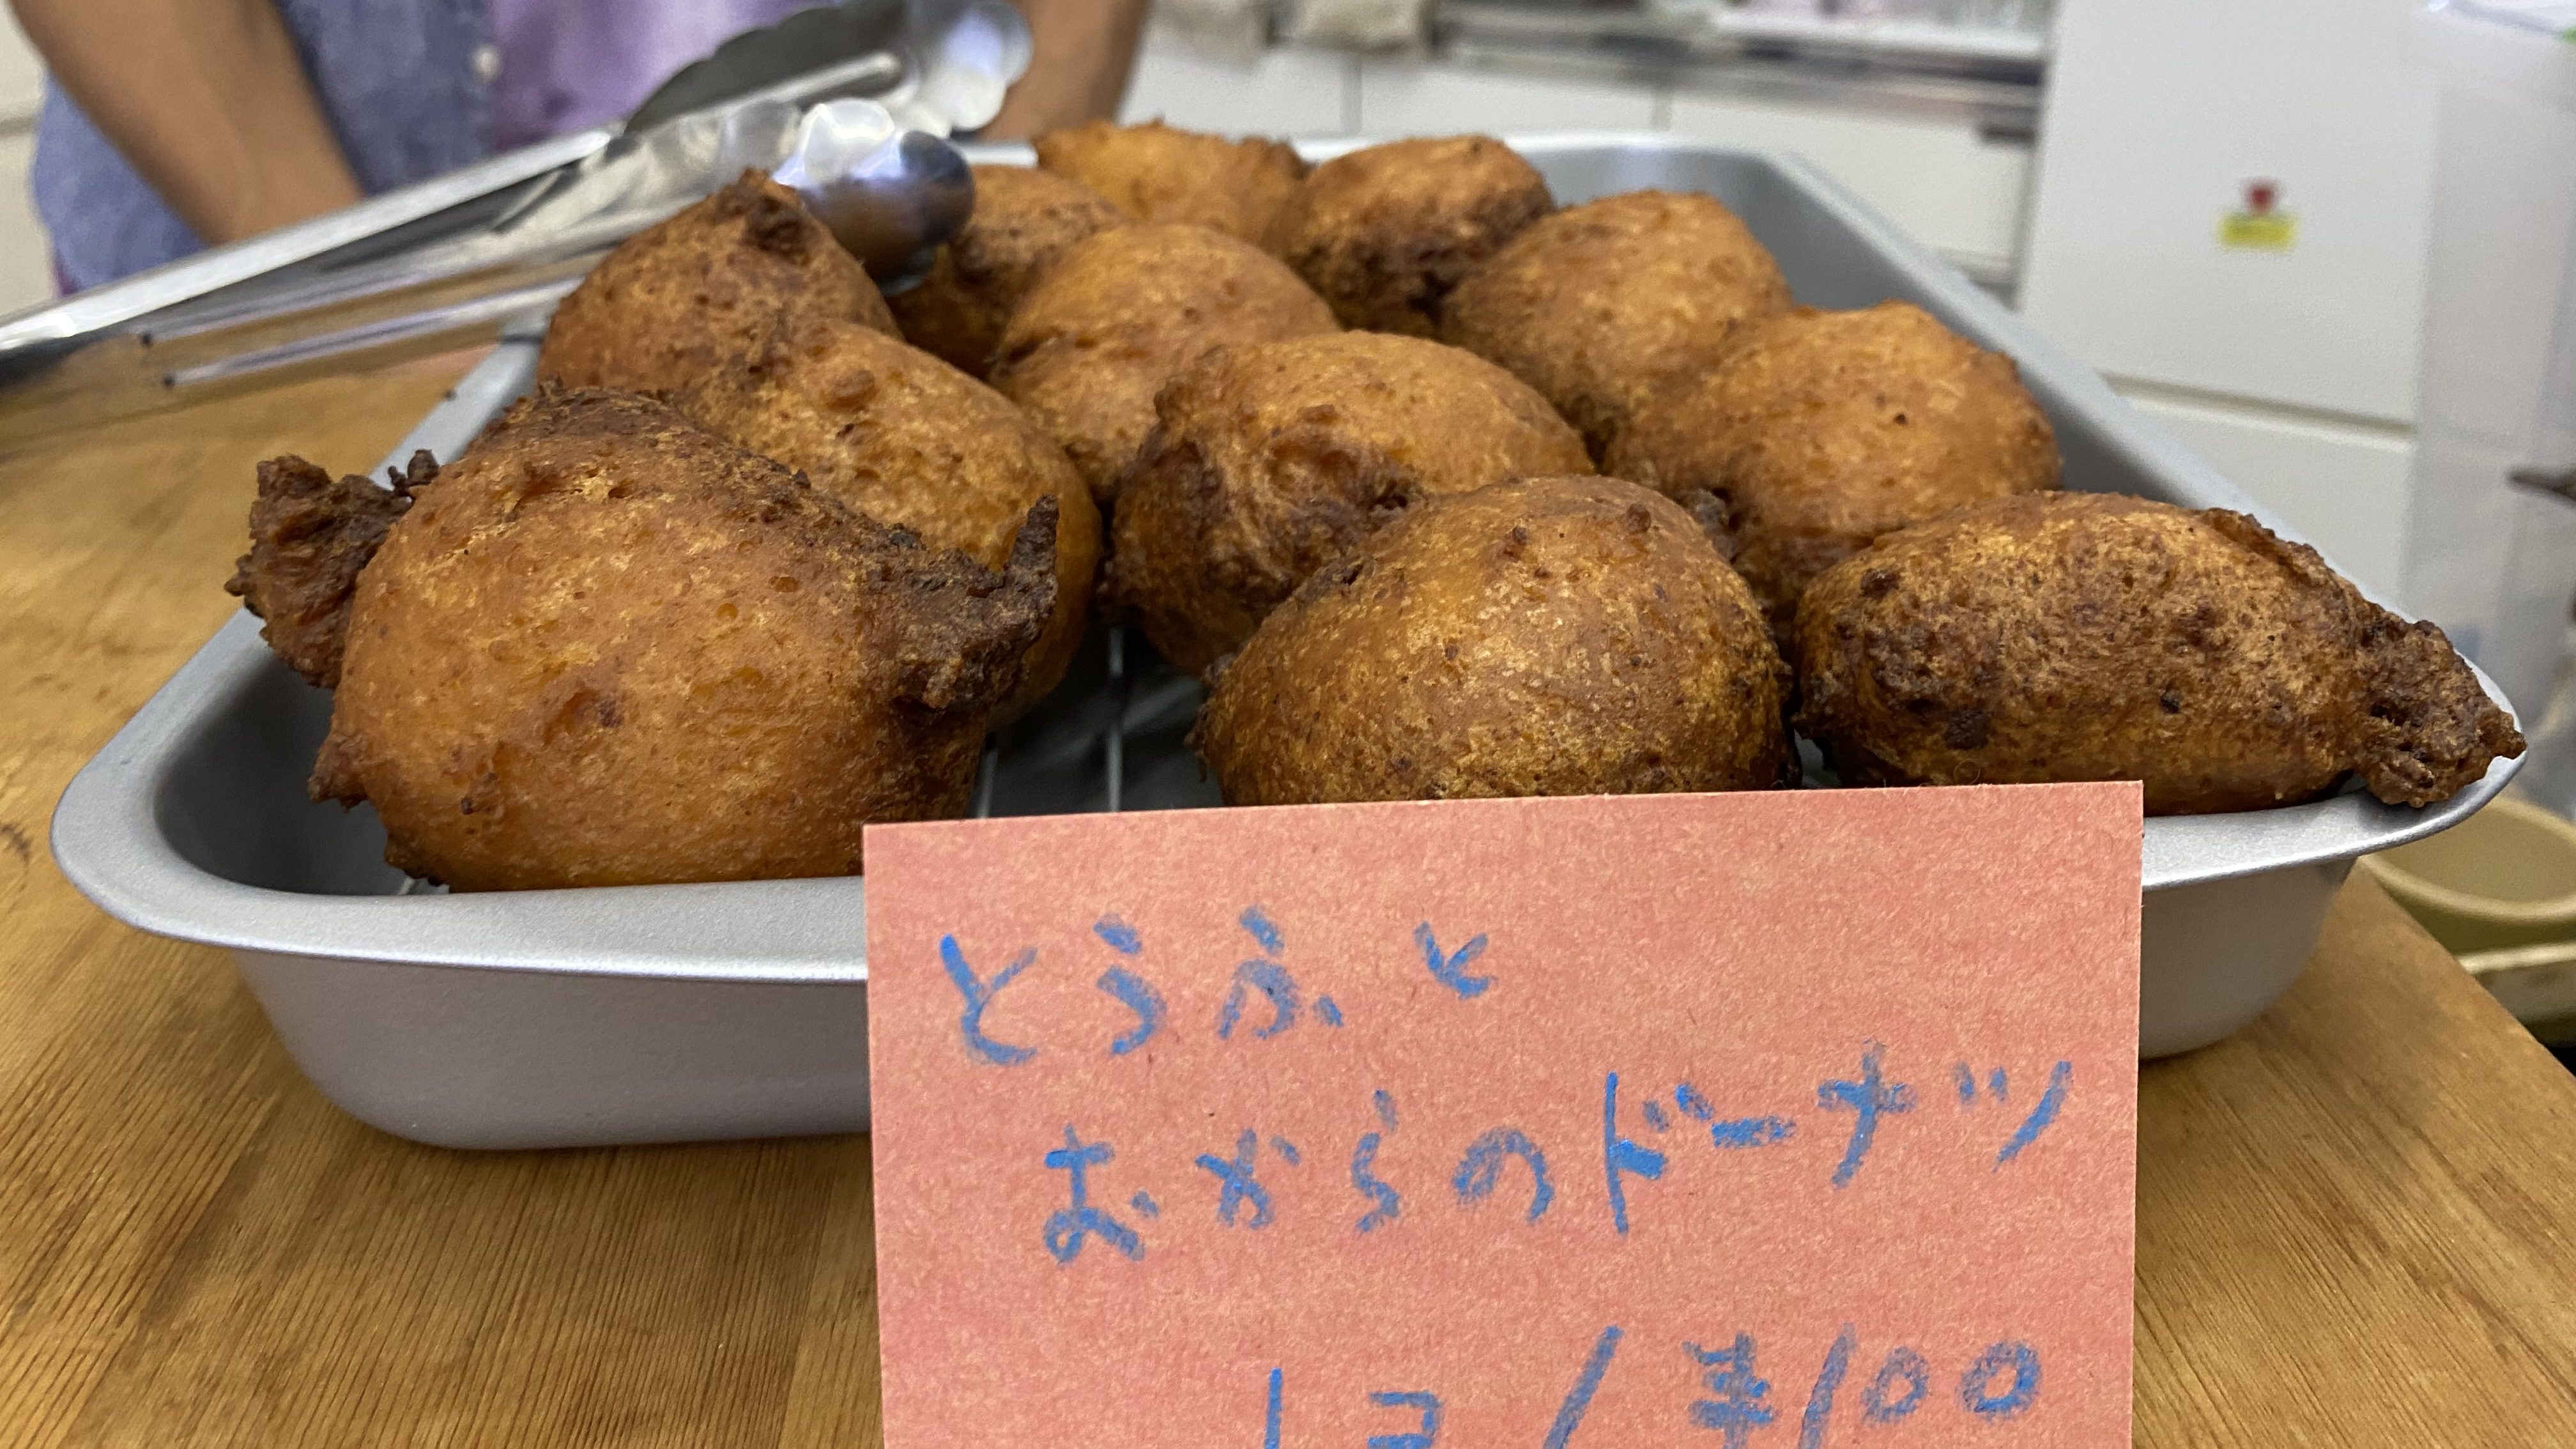 とうふと
おからのドーナツ
1コ/¥100